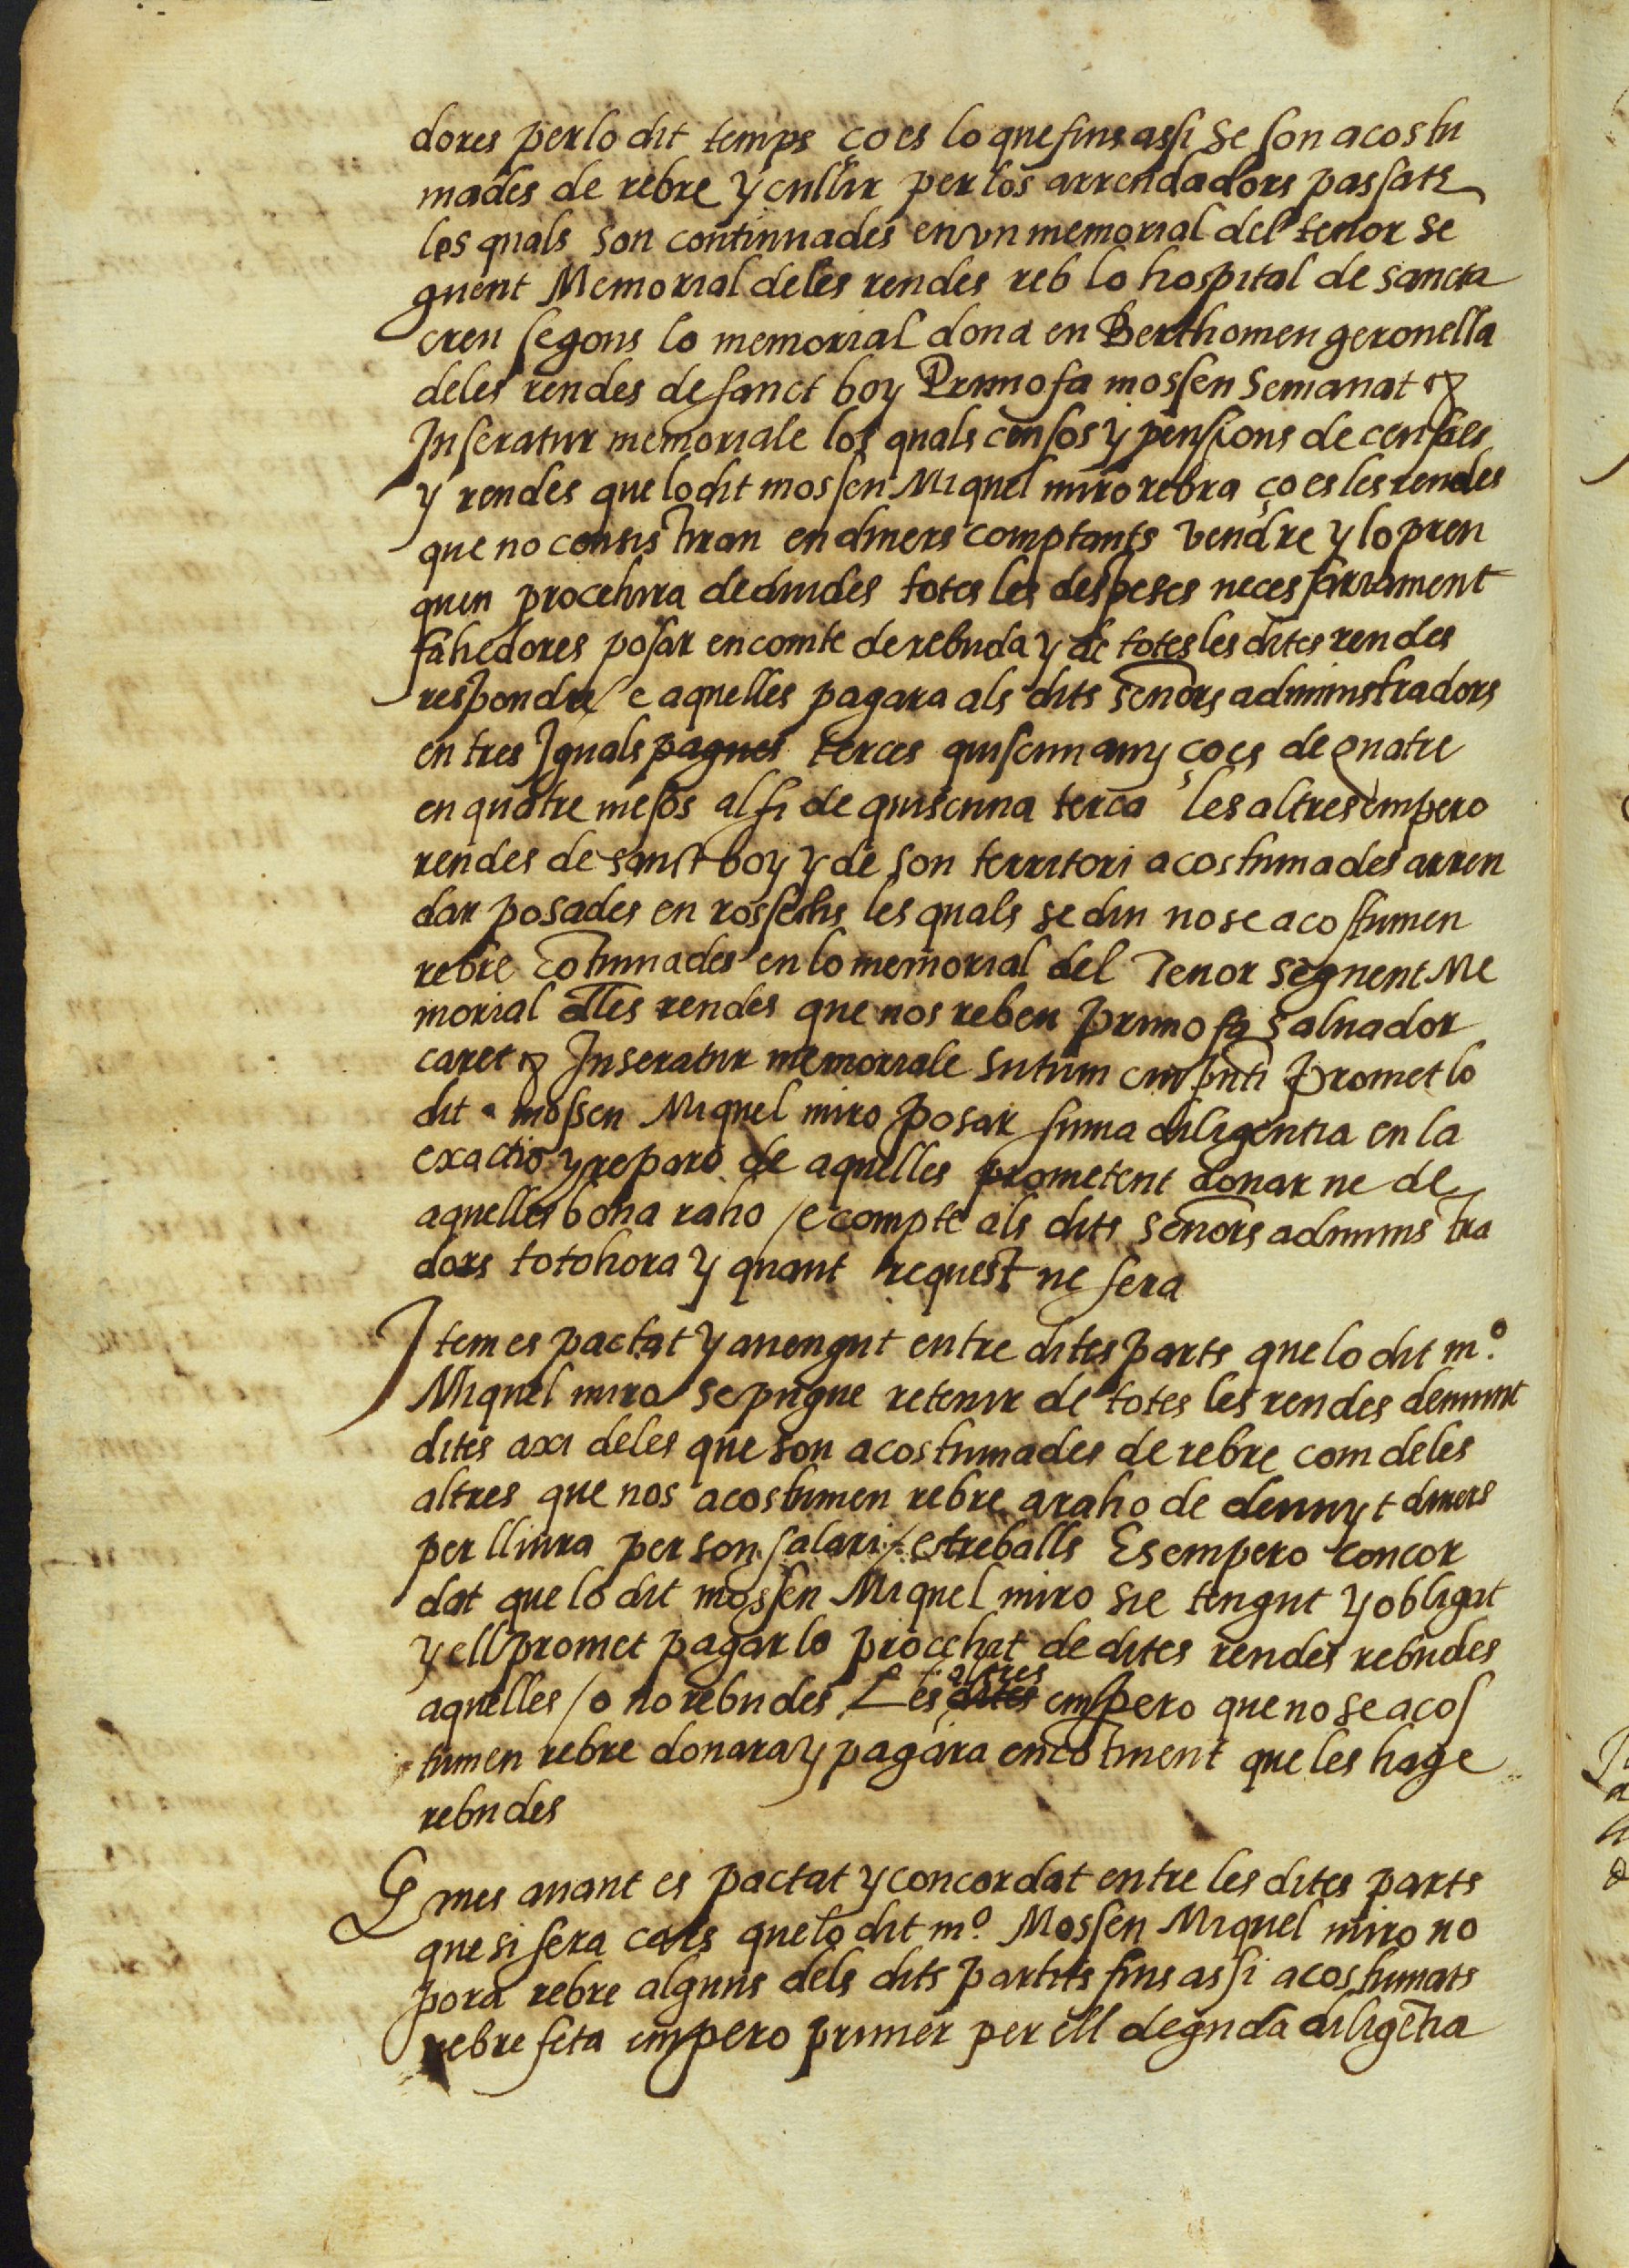 dores per lo dit temps ço es lo que fins assi se son acostu
mades de rebre y cullir per los arrendadors passats
les quals son continuades en vn memorial del tenor se
guent Memorial de les rendes reb lo hospital de sancta
creu segons lo memorial dona en Berthomeu geronella
de les rendes de sanct boy Primo fa mossen Semanat &
Inseratur memoriale los quals censos y pensions de censals
y rendes que lo dit mossen Miquel miro rebra ço es les rendes
que no consistiran en diners comptants vendre y lo preu
quen procehira deduides totes les despeses necessariament
fahedores posar en comte de rebuda y de totes les dites rendes
respondre / e aquelles pagara als dits senors administradors
en tres Iguals pagues terces quiscun any ço es de quatre
en quatre mesos al fi de quiscuna terça les altres empero
rendes de sanct boy y de son territori acostumades arren
dar posades en rossechs les quals se diu no se acostumen
rebre cotinuades en lo memorial del Tenor seguent Me
morial delles rendes que nos reben primo fa saluador
caret & Inseratur memoriale sutum cui pnti Promet lo
dit mossen Miquel miro posar suma diligentia en la
exactio y reparo de aquelles prometent donar ne de
aquelles bona raho / e compte als dits senors administra
dors totohora y quant request ne sera
Item es pactat y auengut entre dites parts que lo dit mº.
Miquel miro se pugue retenir de totes les rendes demunt
dites axi de les que son acostumades de rebre com de les
altres que nos acostumen rebre a raho de deuuyt diners
per lliura per son salari / es treballs Es empero concor
dat que lo dit mossen Miquel miro sie tengut y obligat
y ell promet pagar lo procehit de dites rendes rebudes
aquelles / o no rebudes Les dites altres empero que no se acos
tumen rebre donara y pagara encotinent que les hage
rebudes
E mes auant es pactat y concordat entre les dites parts
que si sera cars que lo dit mº. Mossen Miquel miro no
pora rebre alguns dels dits partits fins assi acostumats
rebre feta empero primer per ell deguda diligetia